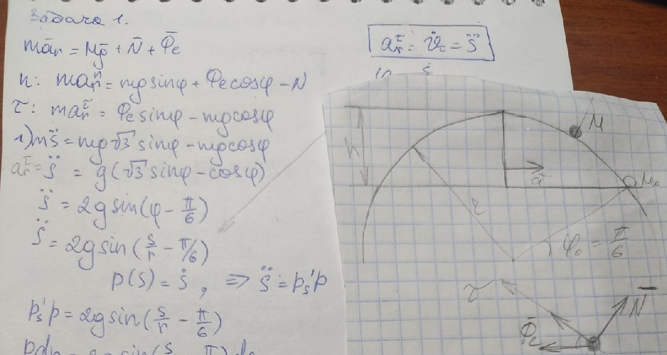 Задача 1.
mā̄r = Mḡ + N̄ + Φ̄e
n: maⁿr = mgsinφ + Φecosφ - N
τ: maᵗr = Φesinφ - mgcosφ
1) ms̈ = mg√3 sinφ - mgcosφ
aᵗr = s̈ = g(√3 sinφ - cosφ)
s̈ = 2gsin(φ - π/6)
s̈ = 2gsin(s/r - π/6)
p(s) = ṡ, ⇒ s̈ = p's p
p's p = 2gsin(s/r - π/6)
aᵗr = v̇r = s̈
M
h
ā
M₀
r
φ₀ = π/6
τ
N̄
Φ̄e